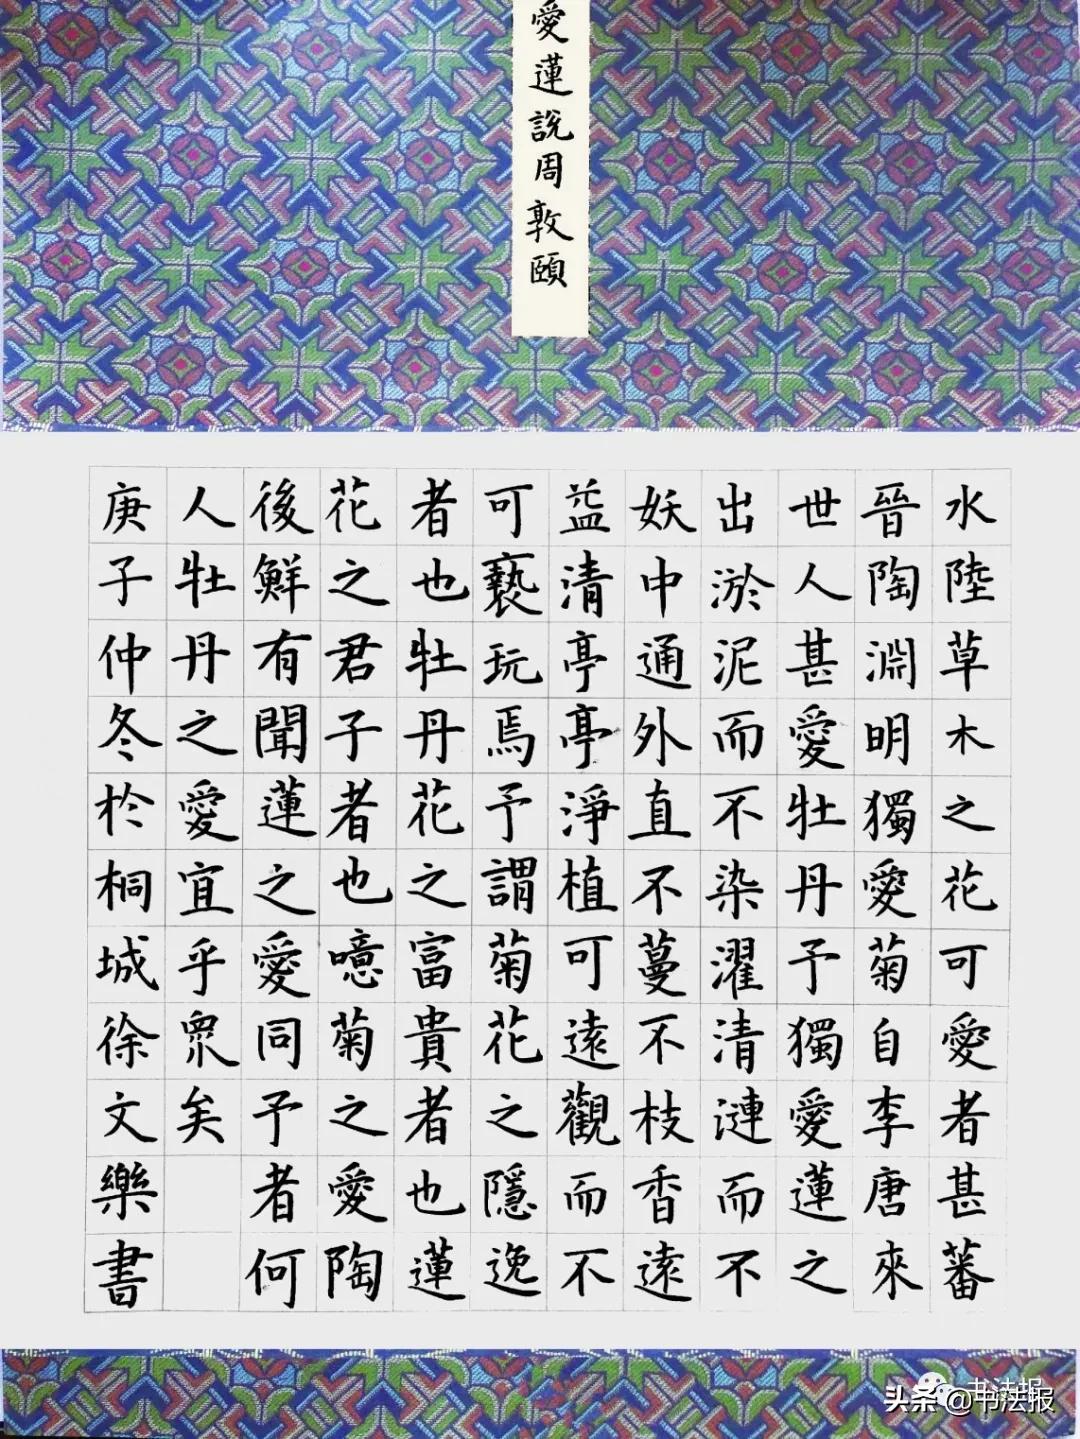 愛蓮說周敦頤
水陸草木之花可愛者甚蕃
晉陶淵明獨愛菊自李唐來
世人甚愛牡丹予獨愛蓮之
出淤泥而不染濯清漣而不
妖中通外直不蔓不枝香遠
益清亭亭淨植可遠觀而不
可褻玩焉予謂菊花之隱逸
者也牡丹花之富貴者也蓮
花之君子者也噫菊之愛陶
後鮮有聞蓮之愛同予者何
人牡丹之愛宜乎眾矣
庚子仲冬於桐城徐文樂書
书法报
头条@书法报